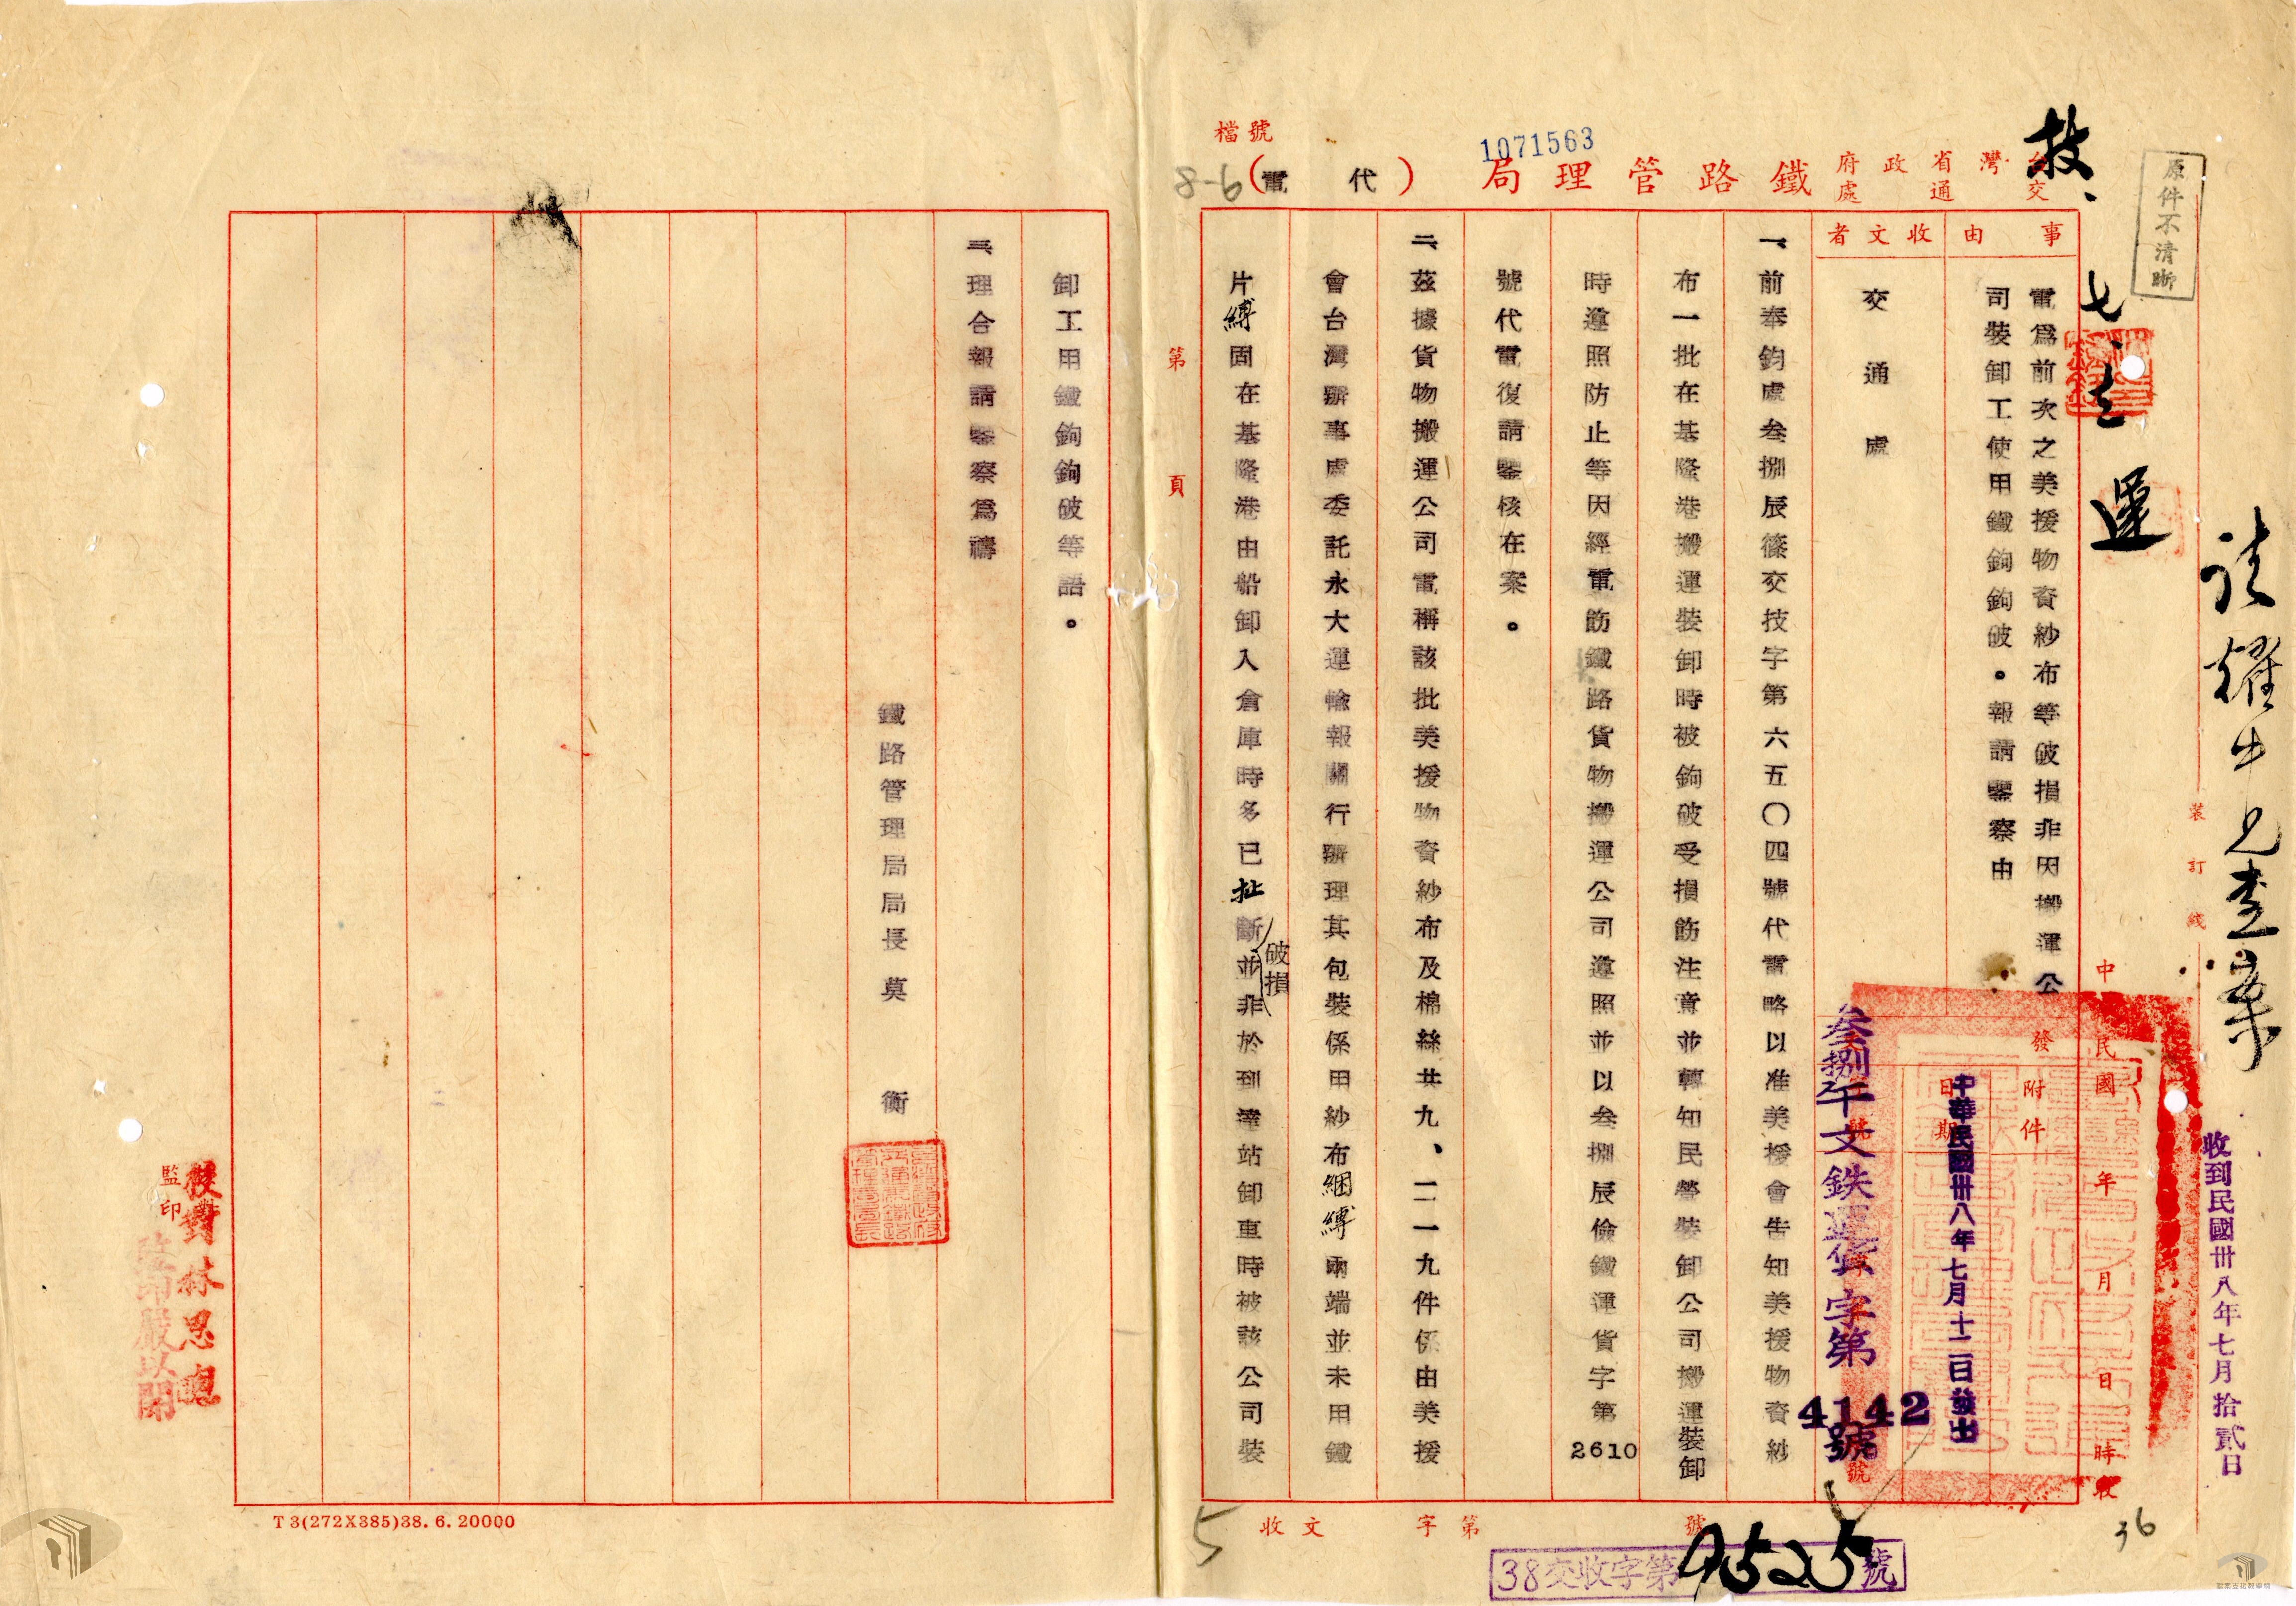 原件不清晰
請耀中兄查案
收到民國卅八年七月拾貳日
裝訂線
技、七、
運
檔號
1071563
台灣省政府交通處鐵路管理局（代電）
8-6
中 民國 年 月 日 時收
事由
電爲前次之美援物資紗布等破損非因搬運公
司裝卸工使用鐵鉤鉤破。報請鑒察由
收文者
交通處
發
附件
日期
中華民國卅八年七月十一日發出
叁捌午文鉄運貨字第4142號
一、前奉鈞處叁捌辰篠交技字第六五〇四號代電略以准美援會告知美援物資紗
布一批在基隆港搬運裝卸時被鉤破受損飭注意並轉知民營裝卸公司搬運裝卸
時遵照防止等因經電飭鐵路貨物搬運公司遵照並以叁捌辰儉鐵運貨字第2610
號代電復請鑒核在案。
二、茲據貨物搬運公司電稱該批美援物資紗布及棉絲共九、一二一九件係由美援
會台灣辦事處委託永大運輸報關行辦理其包裝係用紗布綑縛兩端並未用鐵
片縛固在基隆港由船卸入倉庫時多已扯斷（破損）並非於到達站卸車時被該公司裝
第 頁
收文 字第 號
38交收字第9525號
5
36
卸工用鐵鉤鉤破等語。
三、理合報請鑒察爲禱
鐵路管理局局長莫 衡
監印
校對林思聰
監印嚴以開
T3(272X385)38.6.20000